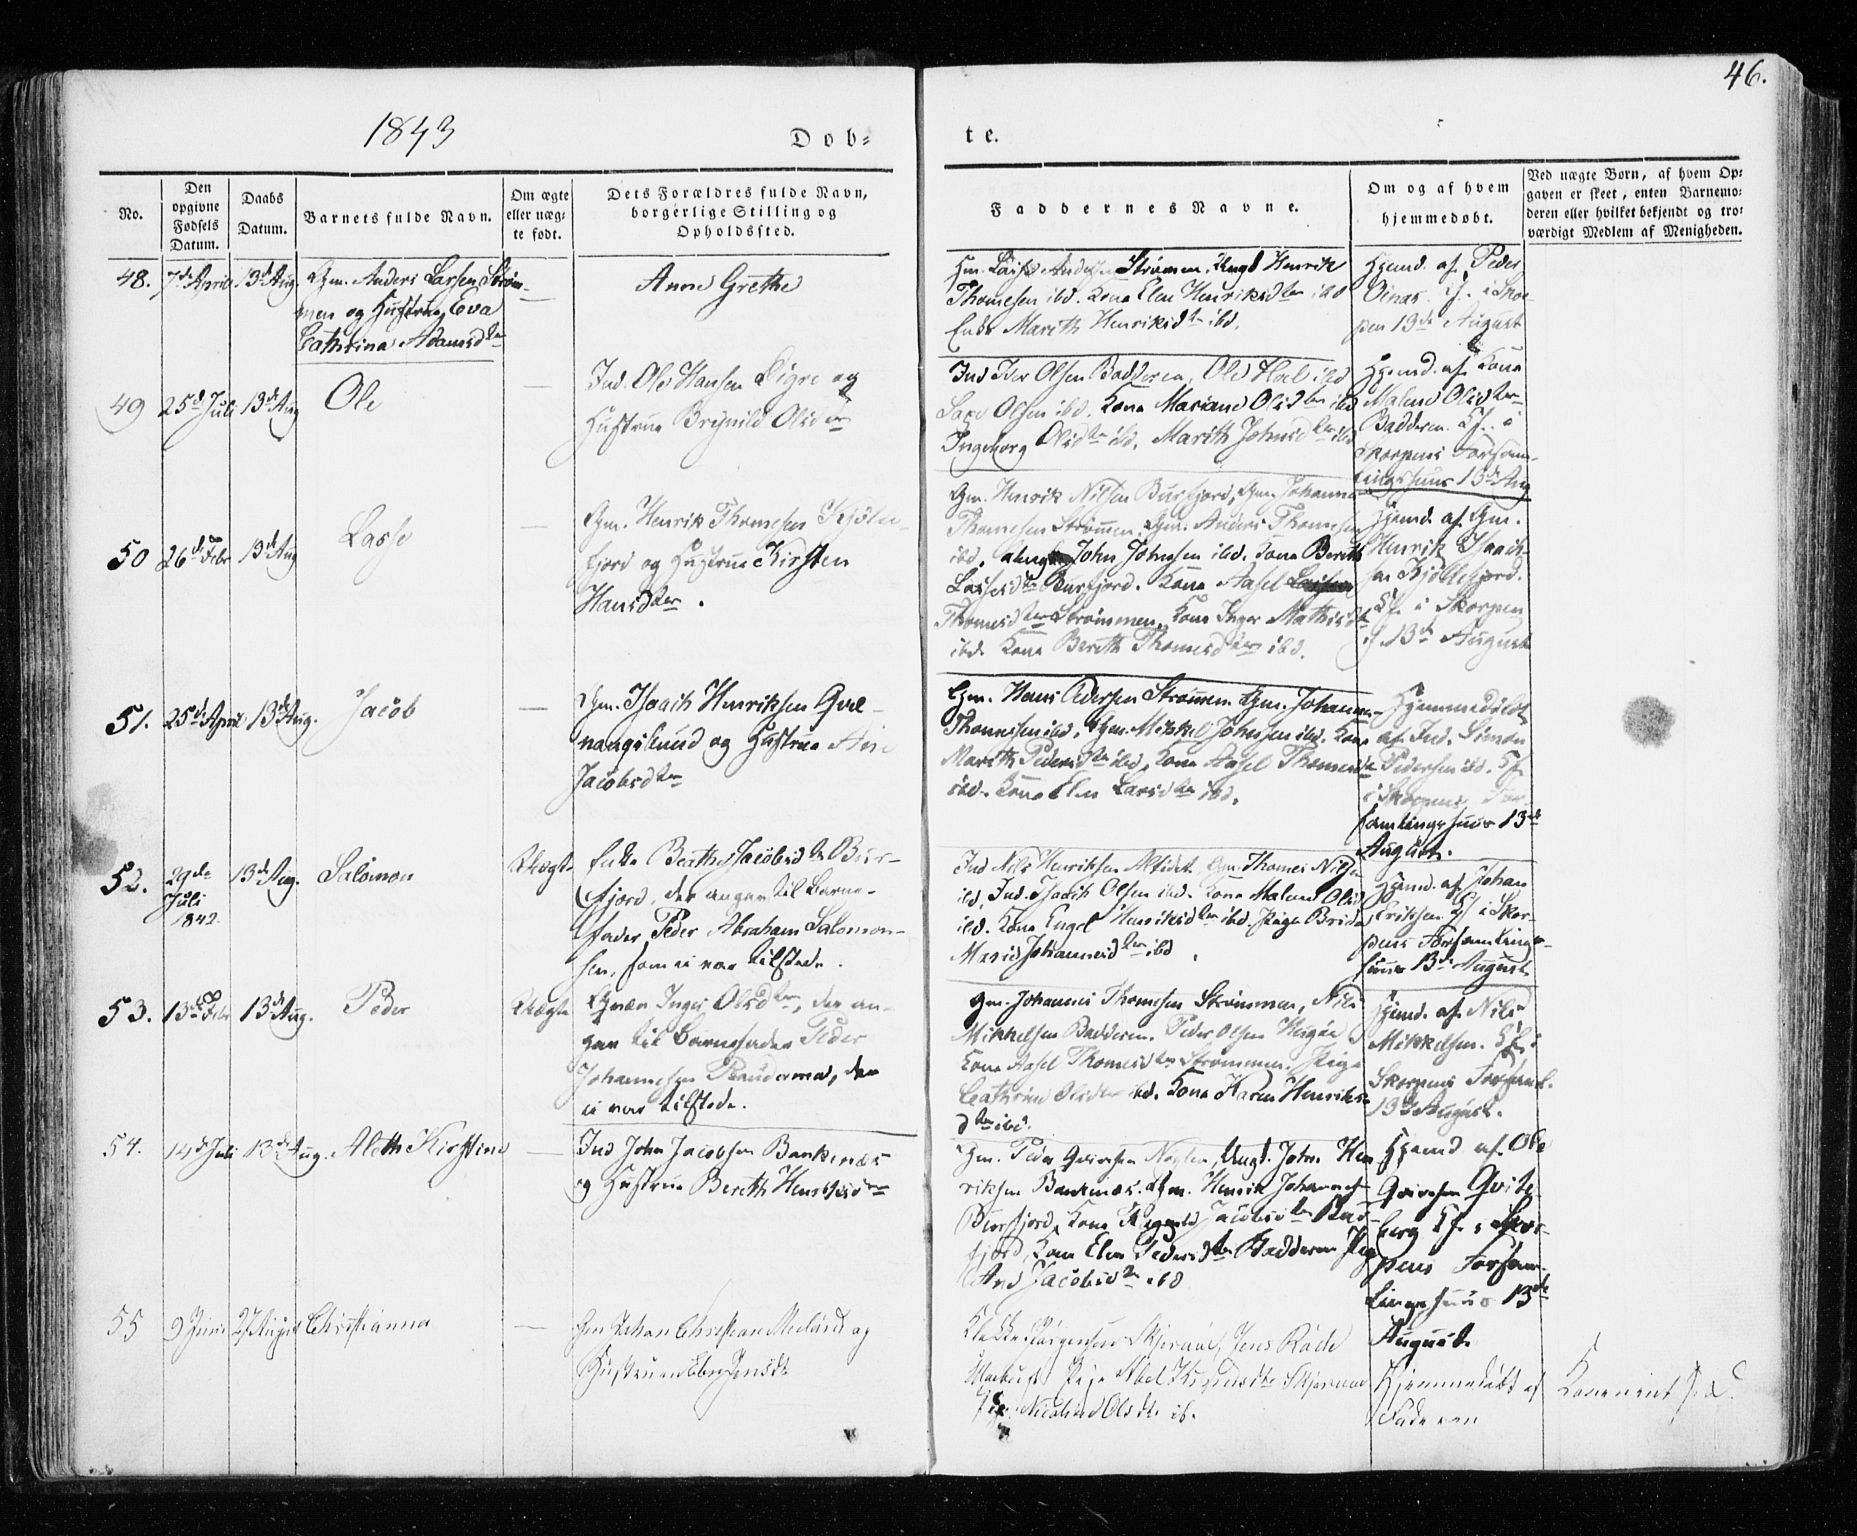 46.
1843
Døb-
te.
No.
Den opgivne Fødsels Datum.
Daabs Datum.
Barnets fulde Navn.
Om ægte eller uægte født.
Dets Forældres fulde Navn, borgerlige Stilling og Opholdssted.
Faddernes Navne.
Om og af hvem hjemmedøbt.
Ved uægte Børn, af hvem Opgaven er skeet, enten Barnemoderen eller hvilket bekjendt og troværdigt Medlem af Menigheden.
48.
7de April
13de Aug
Gm. Anders Larsen Strøm-
men og Hustrue Eva
Cathrina Adamsdter
Anne Grethe
Thomesen ibd. Kone Elen Henriksdter ibd
Enke Marith Henriksdtr ibd.
Hjemd. af Peder
pen 13de August
49
25de Juli
13de Aug
Ole
Ind. Ole Hansen Digre og
Hustrue Brynild Olsdter
Ind Iver Olsen Badderen, Ole ibd
Olsen ibd. Kone Mariane Olsdter ibd
Ingeborg Olsdtr ibd. Marith Johnsdter ibd
Hjemd. af Kone
Malene Olsdter
Badderen. Kf. i
Skorpens Forsam-
lingshuus 13de Aug
50
26de Febr
13de Aug
Lasse
Gm. Henrik Thomesen Kjøle-
fjord og Hustrue Kirsten
Hansdter.
Gm. Henrik Nilsen Burfjord, Gm. Johannes
Thomesen Strømmen, Gm. Anders Thomesen
ibd. John Johnsen ibd. Kone Berith
Lassesdtr Burfjord. Kone Aasel
Thomesdter Strømmen, Kone Inger Mathisdtr
ibd. Kone Berith Thomesdter ibd.
Hjemd. af Gm.
Henrik Isaach-
sen Kjøllefjord.
Kf. i Skorpen
13de August
51.
25de April
13de Aug.
Jacob
Gm. Isaach Henriksen Qvæ-
nangslund og Hustrue
Jacobsdter
Gm. Hans Pedersen Strømmen Gm. Johannes
Thomesen ibd, Gm. Mikkel Johnsen ibd. Kone
Marith Pedersdtr ibd, Kone Aasel Thomesdtr
ibd. Kone Elen Larsdtr ibd.
Hjemmedøbt
af Ind. Simon
Pedersen ibd. Kf.
i Skorpens For-
samlingshuus 13de
August.
52.
29de
Juli
1842.
13de Aug.
Salomon
Uægte
Enke Berthe Jacobsdtr Bur-
fjord, der angav til Barne-
fader Peder Abraham Salomon-
sen, som ei var tilstede.
Ind Nils Henriksen Altidet. Gm. Thomes Nilsen
ibd, Ind. Isaach Olsen ibd. Kone Malene Olsdtr
ibd. Kone Engel Henriksdter ibd. Pige
Marie Johannesdter ibd.
Hjemd. af Johan
Eriksen Kf i Skor-
pens Forsamlings-
huus 13de August
53.
13de Febr
13de Aug.
Peder
Uægte
Qvæn Inger Olsdter, der an-
gav til Barnefader Peder
Johannesen, der
ei var tilstede.
Gm. Johannes Thomesen Strømmen, Nils
Mikkelsen Badderen. Peder Olsen
Kone Aasel Thomesdtr Strømmen. Pige
Cathrine Olsdter ibd. Kone Karen Henriks-
dter ibd.
Hjemd. af Nils
Mikkelsen. Kf. i
Skorpens Forsaml.
13de August.
54.
14de Juli
13de Aug.
Aleth Kirstine
Ind John Jacobsen Bankenæs
og Hustrue Berith Henriksdter
Gm. Peder Qvivesen, Ungk. John Hen
riksen Bankenæs. Gm. Henrik Johannes
Burfjord, Kone Jacobsdter Bur-
fjord, Kone Elen Pedersdtr Badderen Pige
Ane Jacobsdtr ibd
Hjemd af Ole
berg Kf. i Skor-
pens Forsam-
lingshuus 13de
August.
55
9 Juni
27 August
Christianna
Hr Johan Christian og
Hustrue Jensdtr
Pige Nicoline Olsdtr ib.
Hjemmedøbt af
Faderen